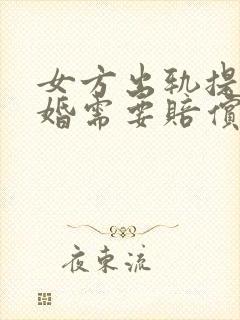 女方出轨提
婚需要赔偿
夜束流